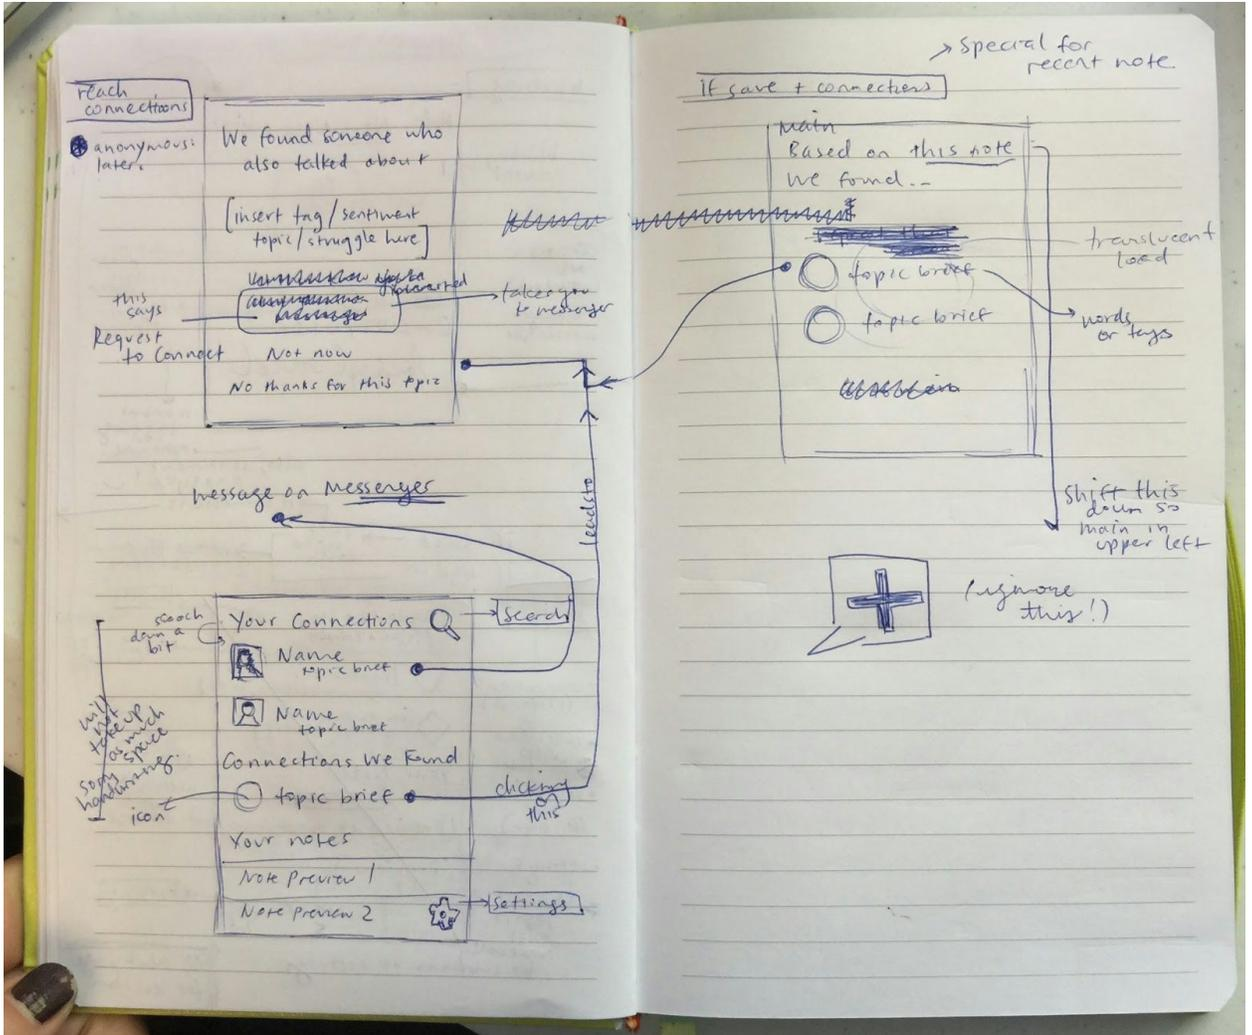 reach
connections
anonymous:
later.
We found someone who
also talked about
[insert tag/sentiment
topic/struggle here]
this
says
Request
to Connect
takes you
to messenger
Not now
No thanks for this topic
message on Messenger
leads to
scooch
down a
bit
Your Connections
Search
Name
topic brief
Name
topic brief
will
not
take up
as much
space
sorry
handwriting.
Connections We Found
topic brief
clicking
on
this
icon
Your notes
Note Preview 1
Note Preview 2
settings
Special for
recent note
If save + connections
Main
Based on this note
We found...
translucent
load
topic brief
topic brief
words
or tags
Shift this
down so
main in
upper left
(ignore
this!)